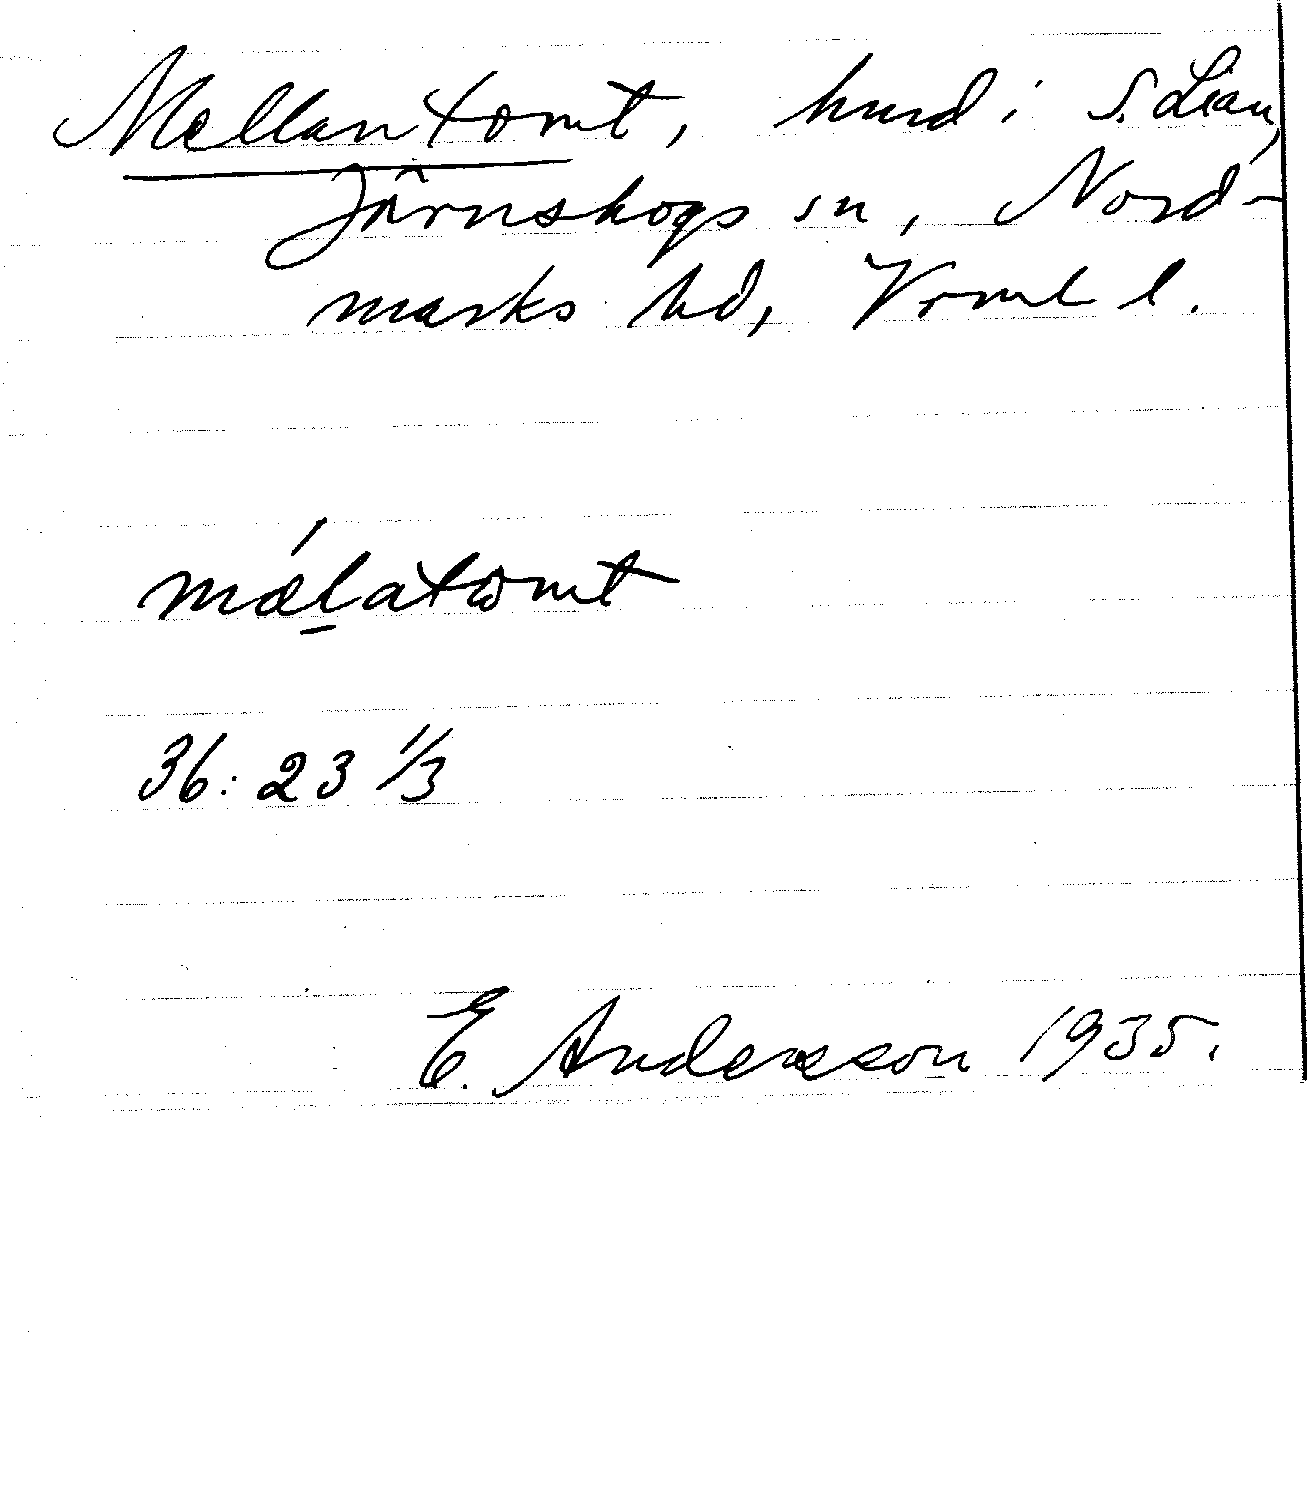 Mellantomt, hmd i S. Lian,
Järnskogs sn, Nord-
marks hd, Vrml l.
mǽl̠atωmt
36: 23 1/3
E. Andersson 1935.